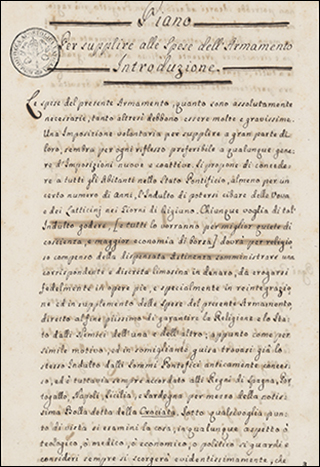 Piano
Per supplire alle Spese dell'Armamento
Introduzione.
Le spese del presente Armamento, quanto sono assolutamente
necessarie, tanto altresì debbono essere molte e gravissime.
Una Imposizione volontaria per supplire a gran parte di
loro, sembra per ogni riflesso preferibile a qualunque gene-
re d'Imposizioni nuove e coattive. Si propone di conceder
a tutti gli Abitanti nello Stato Pontificio, almeno per un
certo numero di Anni, l'Indulto di potersi cibare delle Uova
e dei Latticinj nei Giorni di Digiuno. Chiunque voglia di tal'
Indulto godere, [e tutti lo vorranno per miglior quiete di
coscienza, e maggior economia di borsa] dovrà per religio-
so compenso della dispensata astinenza somministrare una
corrispondente e discreta limosina in denaro, da erogarsi
fedelmente in opere pie, e specialmente in reintegrazio
ne ed in supplemento delle Spese del presente Armamento
diretto al fine piissimo di garantire la Religione e lo Sta-
to dalli Nemici dell'una e dell'altro; appunto come per
simile motivo, ed in somigliante guisa trovasi già lo
stesso Indulto dalli Sommi Pontefici anticamente conces-
so, ed è tuttavia sempre accordato alli Regni di Spagna, Por-
togallo, Napoli, Sicilia, e Sardegna per mezzo della notis-
sima Bolla detta della Crociata. Sotto qualsivoglia pun-
to di vista si esamini la cosa, in qualunque aspetto o
teologico, o medico, o economico, o politico si guardi e
consideri sempre si scorgerà evidentissimamente, che